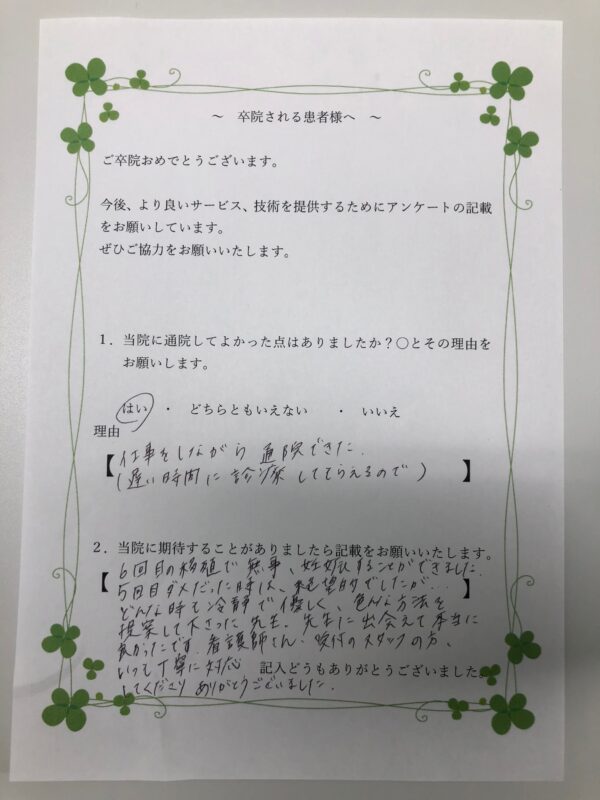 ～ 卒院される患者様へ ～
ご卒院おめでとうございます。
今後、より良いサービス、技術を提供するためにアンケートの記載
をお願いしています。
ぜひご協力をお願いいたします。
1．当院に通院してよかった点はありましたか？〇とその理由を
お願いします。
はい ・ どちらともいえない ・ いいえ
理由
【仕事をしながら 通院できた.
(遅い時間に 診療 してもらえるので) 】
2．当院に期待することがありましたら記載をお願いいたします。
【 6回目の移植で 無事、妊娠することができました.
5回目ダメだった時は、絶望的でしたが... 】
どんな時も冷静で優しく、色んな方法を
提案して下さった 先生. 先生に出会えて本当に
良かったです. 看護師さん・受付のスタッフの方、
いつも丁寧に対応 記入どうもありがとうございました。
してくださり ありがとうございました.